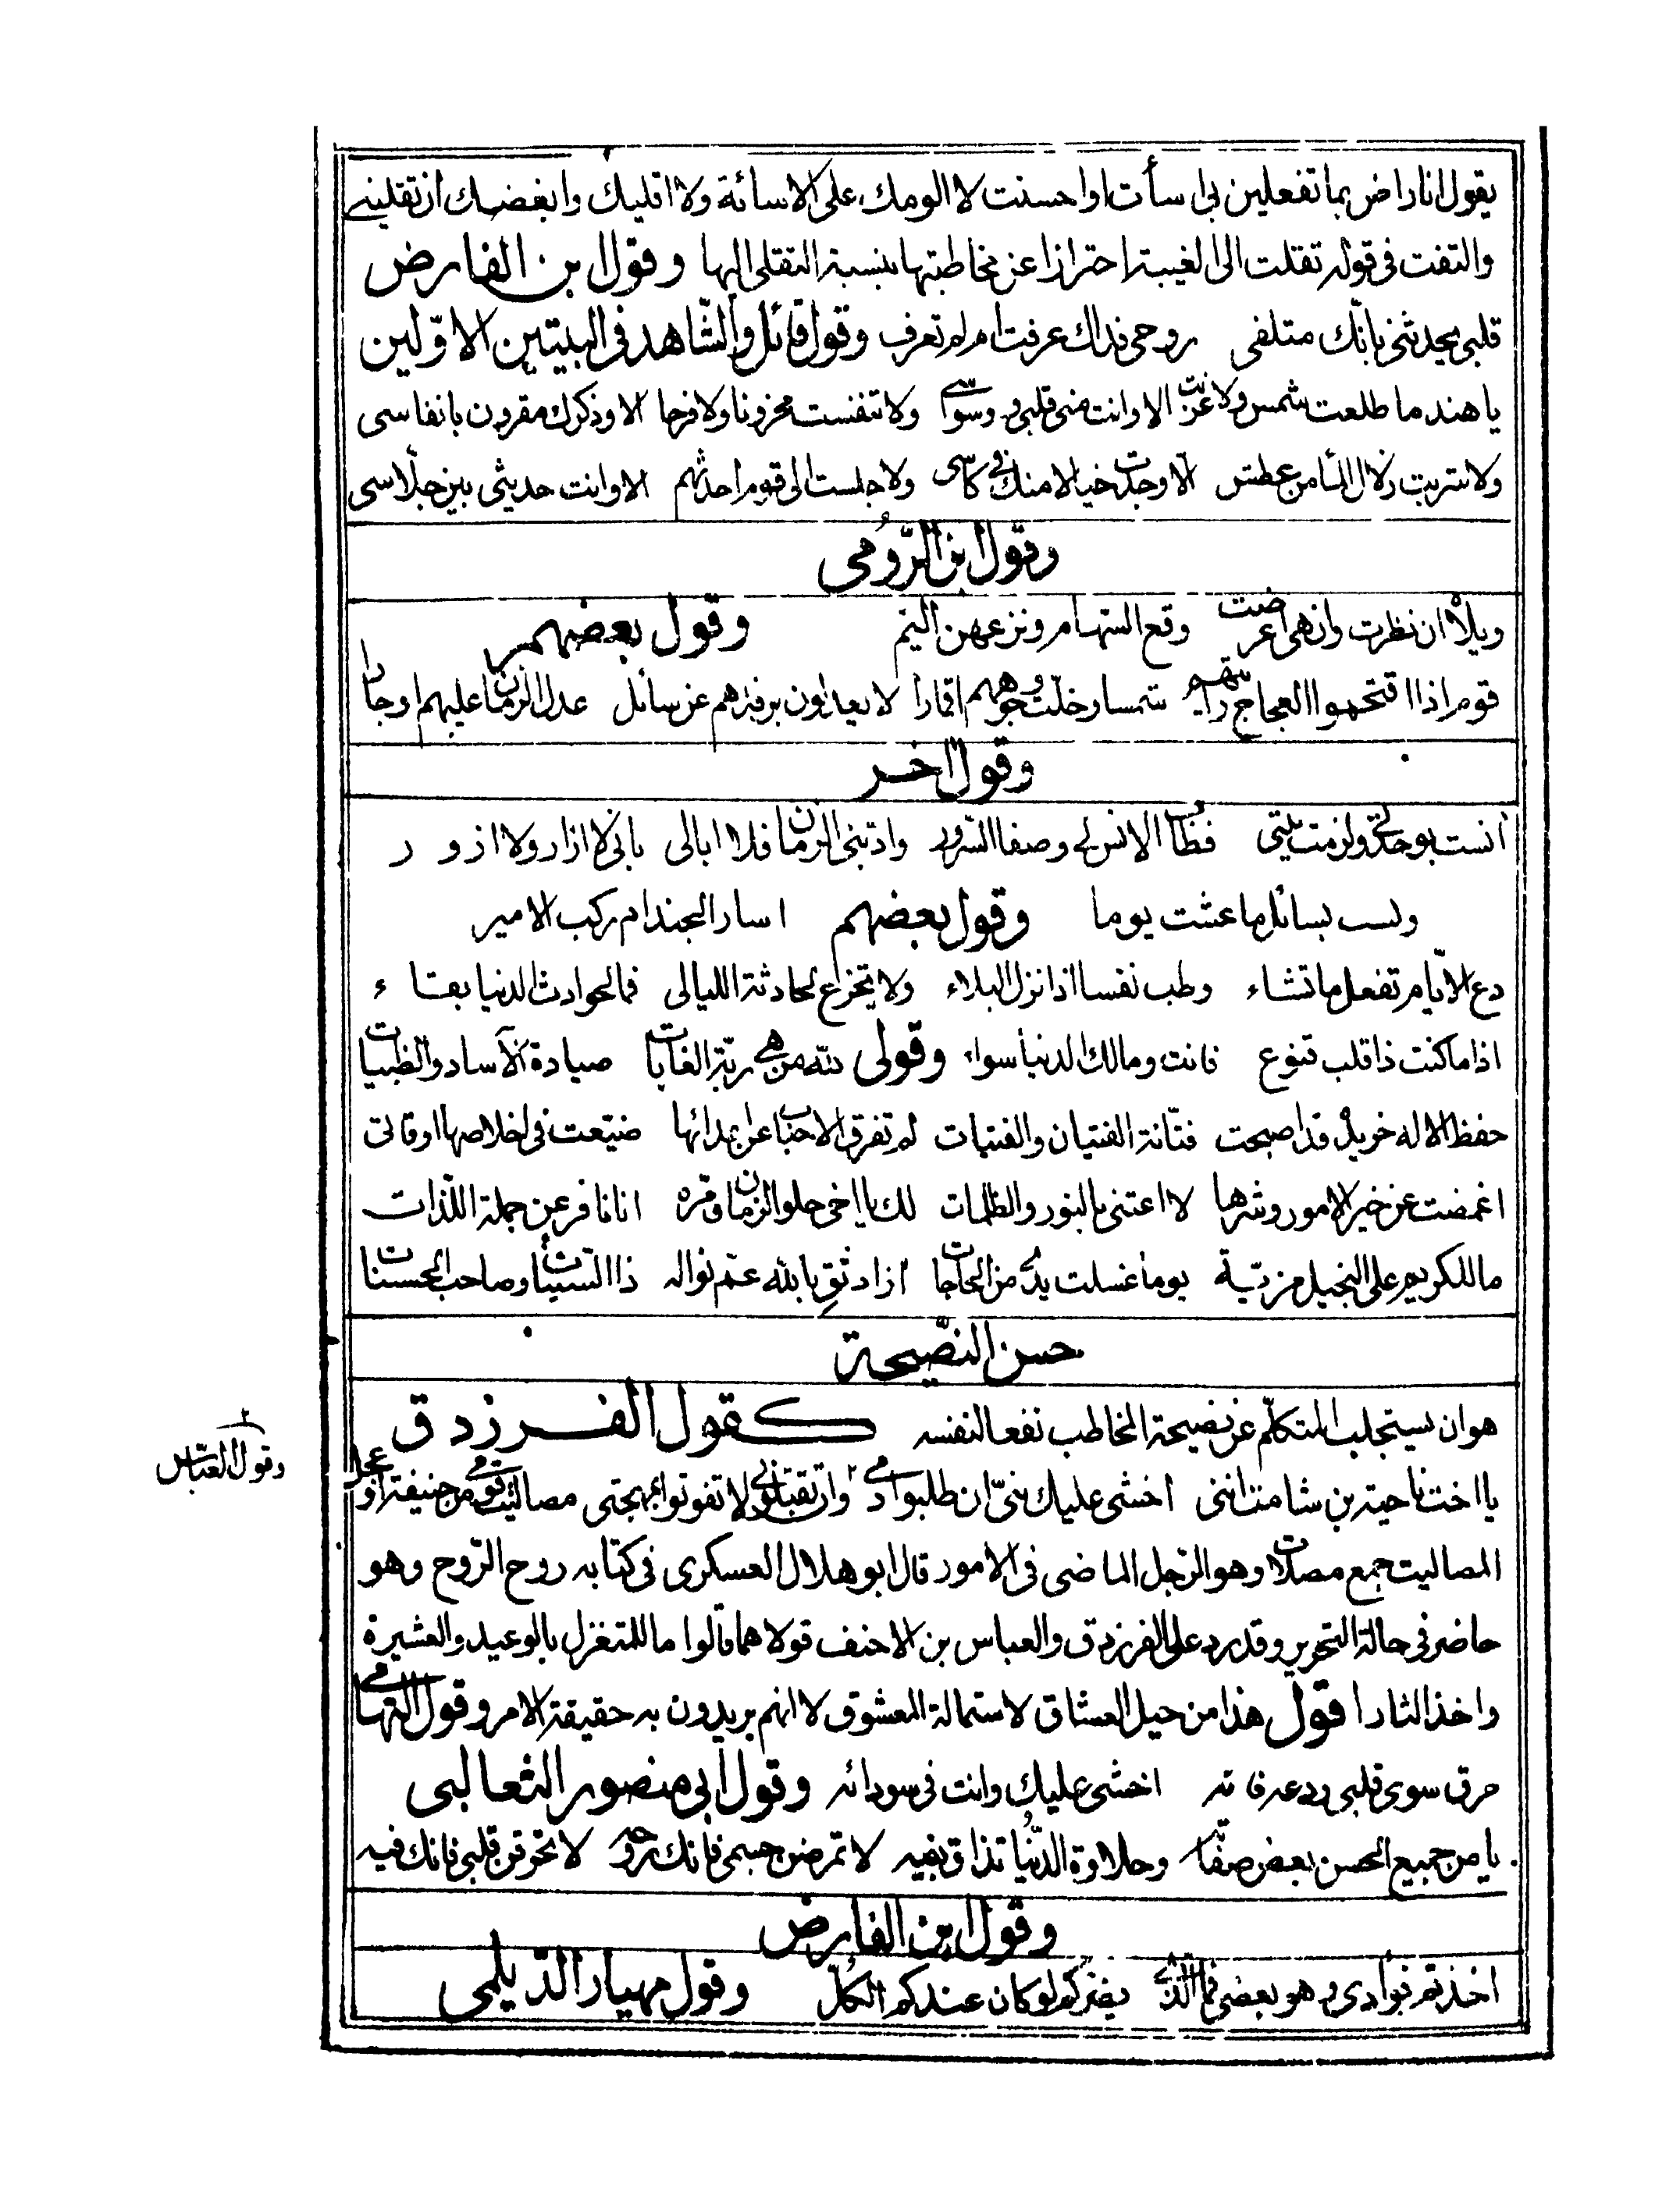 يقول انا راض بما تفعلين بى اسأت او احسنت لا الومك على الاسائة ولا اقليك وابغضك ان تقلينى
والتفت فى قوله تقلت الى الغيبة احترازا عن مخاطبتها بنسبة التقلى اليها وقول ابن الفارض
قلبى يحدثنى بانّك متلفى روحى فداك عرفت ام لم تعرف وقول قائل والشّاهد فى البيتين الاوّلين
يا هند ما طلعت شمس ولا غربت الا وانت منى قلبى ووسواسى ولا تنفست محزونا ولا فرحا الا وذكرك مقرون بانفاسى
ولا شربت زلال الماء من عطش الّا وجدت خيالا منك فى كاسى ولا جلست الى قوم احدثهم الا وانت حديثى بين جلّاسى
وقول ابن الرّومى
ويلاه ان نظرت وان هى اعرضت وقع السّهام ونزعهن اليم وقول بعضهم
قوم اذا اقتحموا العجاج رأيتهم شمسا وخلت وجوههم اقمارا لا يعدلون برفدهم عن سائل عدل الزمان عليهم او جارا
وقول اخر
أنست بوحدتى ولزمت بيتى فطاب الانس لى وصفا السّرور وادّبنى الزمان فلا ابالى بانى لا ازار ولا ازور
ولست بسائل ما عشت يوما وقول بعضهم اسار الجند ام ركب الامير
دع الايّام تفعل ما تشاء وطب نفسا اذا نزل البلاء ولا تجزع لحادثة الليالى فما لحوادث الدنيا بقاء
اذا ما كنت ذا قلب قنوع فانت ومالك الدنيا سواء وقولى لله من هى ربّة الغابات صيادة الآساد والظبيات
حفظ الاله خريدة قد اصبحت فتّانة الفتيان والفتيات لم تفرق الاحباب عن اعدائها ضيّعت فى اخلاصها اوقاتى
اغمضت عن خير الامور وشرها لا اعتنى بالنور والظلمات لك يا اخى حلو الزمان ومّره انا نافر عن جملة اللّذات
ما للكريم على البخيل مزيّة يوما غسلت يدى من الحاجات ازاد ثق بالله عمّ نواله ذا السّيئات وصاحب الحسنات
حسن النصّيحة
هو ان يستجلب المتكلّم عن نصيحة المخاطب نفعا لنفسه كقول الفرزدق
يا اخت ناحية بن سامة اننى اخشى عليك بنىّ ان طلبوا دمى ٢ وان تقتلونى لا تفوتوا بمهجتى مصاليت قومى من حنيفة او عجل
المصاليت جمع مصلات وهو الرّجل الماضى فى الامور قال ابو هلال العسكرى فى كتابه روح الرّوح وهو
حاضر فى حالة التحرير وقد رد على الفرزدق والعباس بن الاحنف قولاهما قالوا ما للمتغزل بالوعيد والعشيرة
واخذ الثار اقول هذا من حيل العشاق لاستمالة المعشوق لا انهم يريدون به حقيقة الامر وقول التهامى
حرق سوى قلبى ودعه فانه اخشى عليك وانت فى سودائه وقول ابى منصور الثعالبى
يا من جميع الحسن بعض صفاته وحلاوة الدّنيا تذاق بفيه لا تمرضن جسمى فانك روحه لا تحرقن قلبى فانك فيه
وقول ابن الفارض
اخذتم فؤادى وهو بعضى فما الّذى يضرّكم لو كان عندكم الكلّ وقول مهيار الدّيلمى
٢ وقول العبّاس